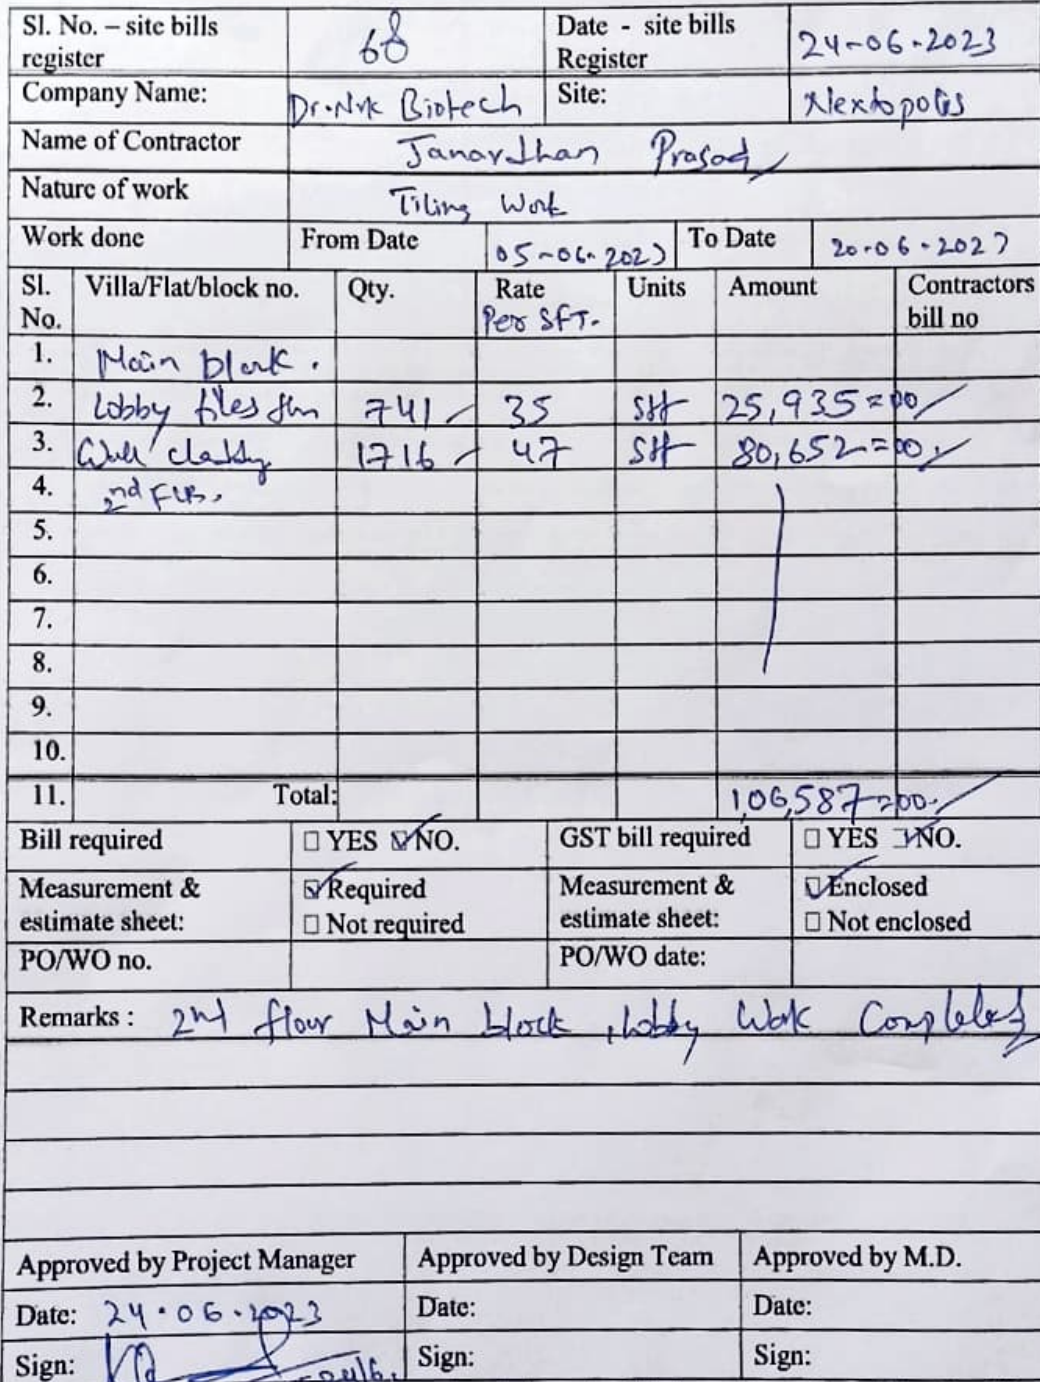 Sl. No. – site bills register 68 Date - site bills Register 24-06-2023
Company Name: Dr.Nrk Biotech Site: Nextopolis
Name of Contractor Janardhan Prasad
Nature of work Tiling Work
Work done From Date 05-06-2023 To Date 20-06-2023
Sl. No. Villa/Flat/block no. Qty. Rate Per SFT. Units Amount Contractors bill no
1. Main block.
2. Lobby tiles 741 35 Sft 25,935=00
3. Wall cladding 1716 47 Sft 80,652=00
4. 2nd
5.
6.
7.
8.
9.
10.
11. Total: 1,06,587=00
Bill required ☐ YES ☑ NO. GST bill required ☐ YES ☑ NO.
Measurement & estimate sheet: ☑ Required ☐ Not required Measurement & estimate sheet: ☑ Enclosed ☐ Not enclosed
PO/WO no. PO/WO date:
Remarks : 2nd floor Main block, Lobby Work Completed
Approved by Project Manager Approved by Design Team Approved by M.D.
Date: 24.06.2023 Date: Date:
Sign: Sign: Sign: